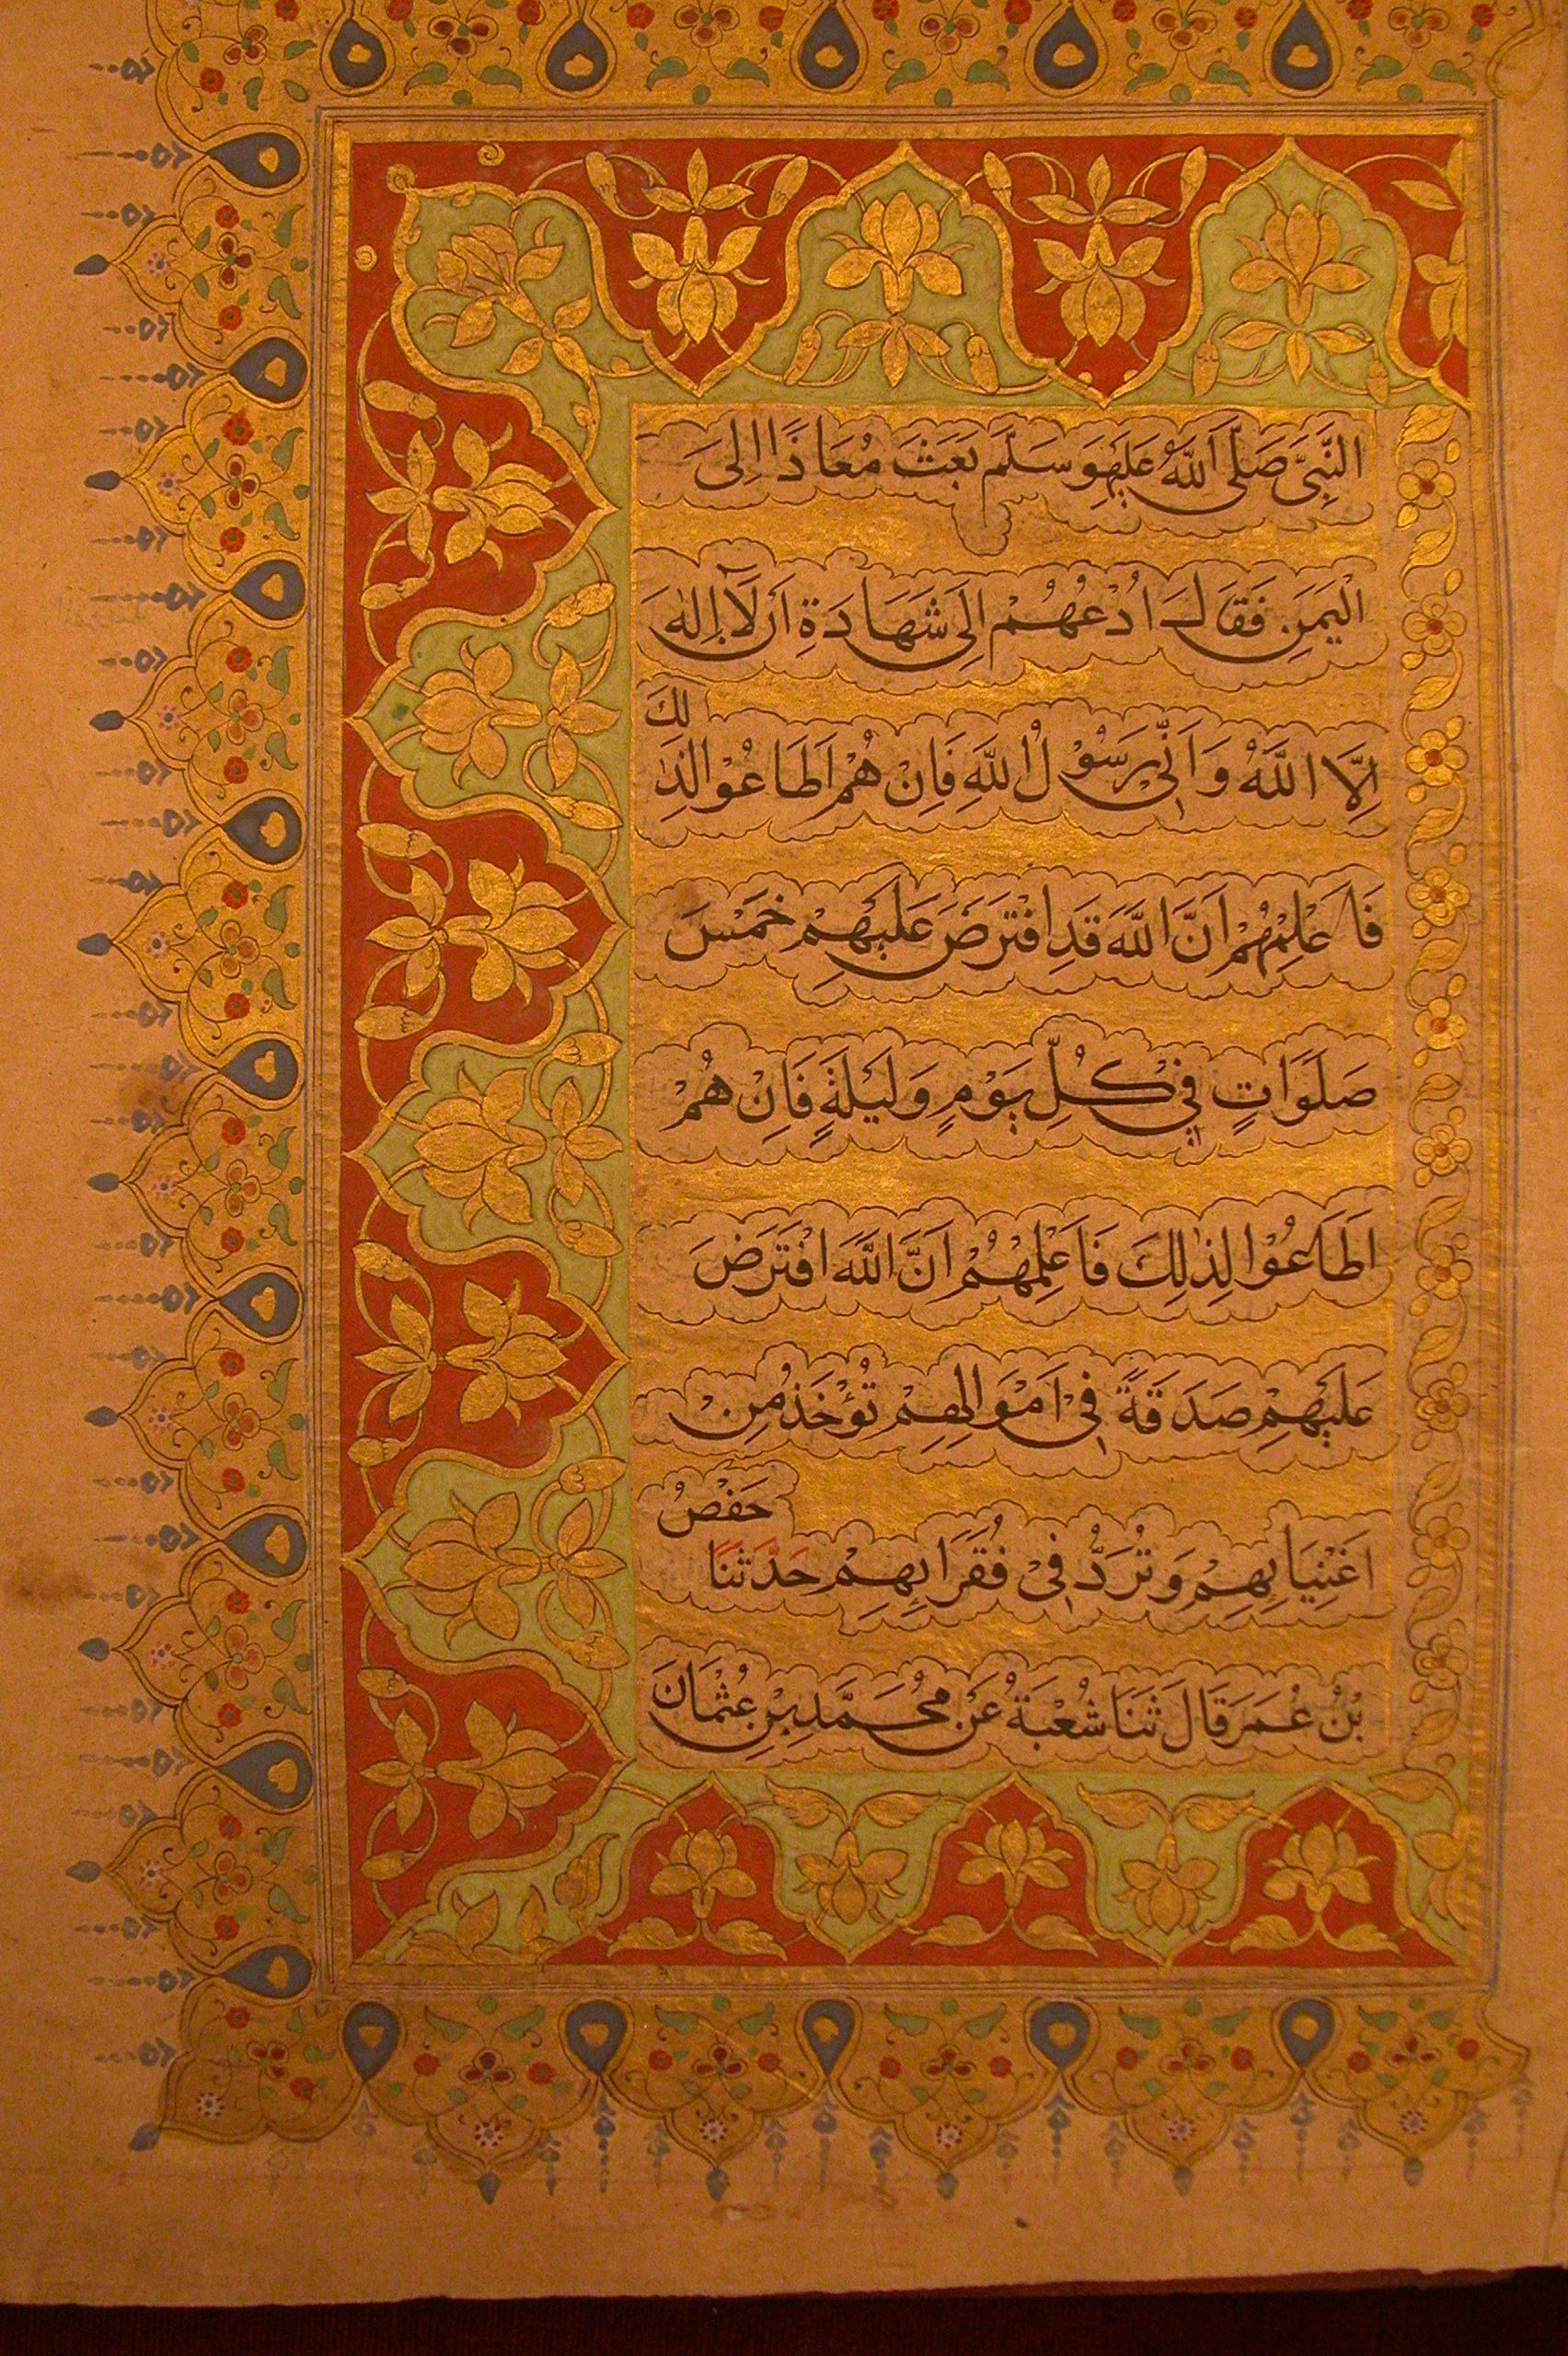 النَّبِيَّ صَلَّى اللهُ عَلَيْهِ وَسَلَّمَ بَعَثَ مُعَاذًا اِلَى
الْيَمَنِ فَقَالَ ادْعُهُمْ اِلَى شَهَادَةِ اَنْ لَآ اِلٰهَ
اِلَّا اللّٰهُ وَاَنِّي رَسُوْلُ اللّٰهِ فَاِنْ هُمْ اَطَاعُوا لِذٰلِكَ
فَاَعْلِمْهُمْ اَنَّ اللّٰهَ قَدِ افْتَرَضَ عَلَيْهِمْ خَمْسَ
صَلَوَاتٍ فِيْ كُلِّ يَوْمٍ وَلَيْلَةٍ فَاِنْ هُمْ
اَطَاعُوْا لِذٰلِكَ فَاَعْلِمْهُمْ اَنَّ اللّٰهَ افْتَرَضَ
عَلَيْهِمْ صَدَقَةً فِيْ اَمْوَالِهِمْ تُؤْخَذُ مِنْ
اَغْنِيَايِٕهِمْ وَتُرَدُّ فِيْ فُقَرَايِٕهِمْ حَدَّثَنَا حَفْصُ
بْنُ عُمَرَ قَالَ ثَنَا شُعْبَةُ عَنْ مُحَمَّدِ بْنِ عُثْمَانَ